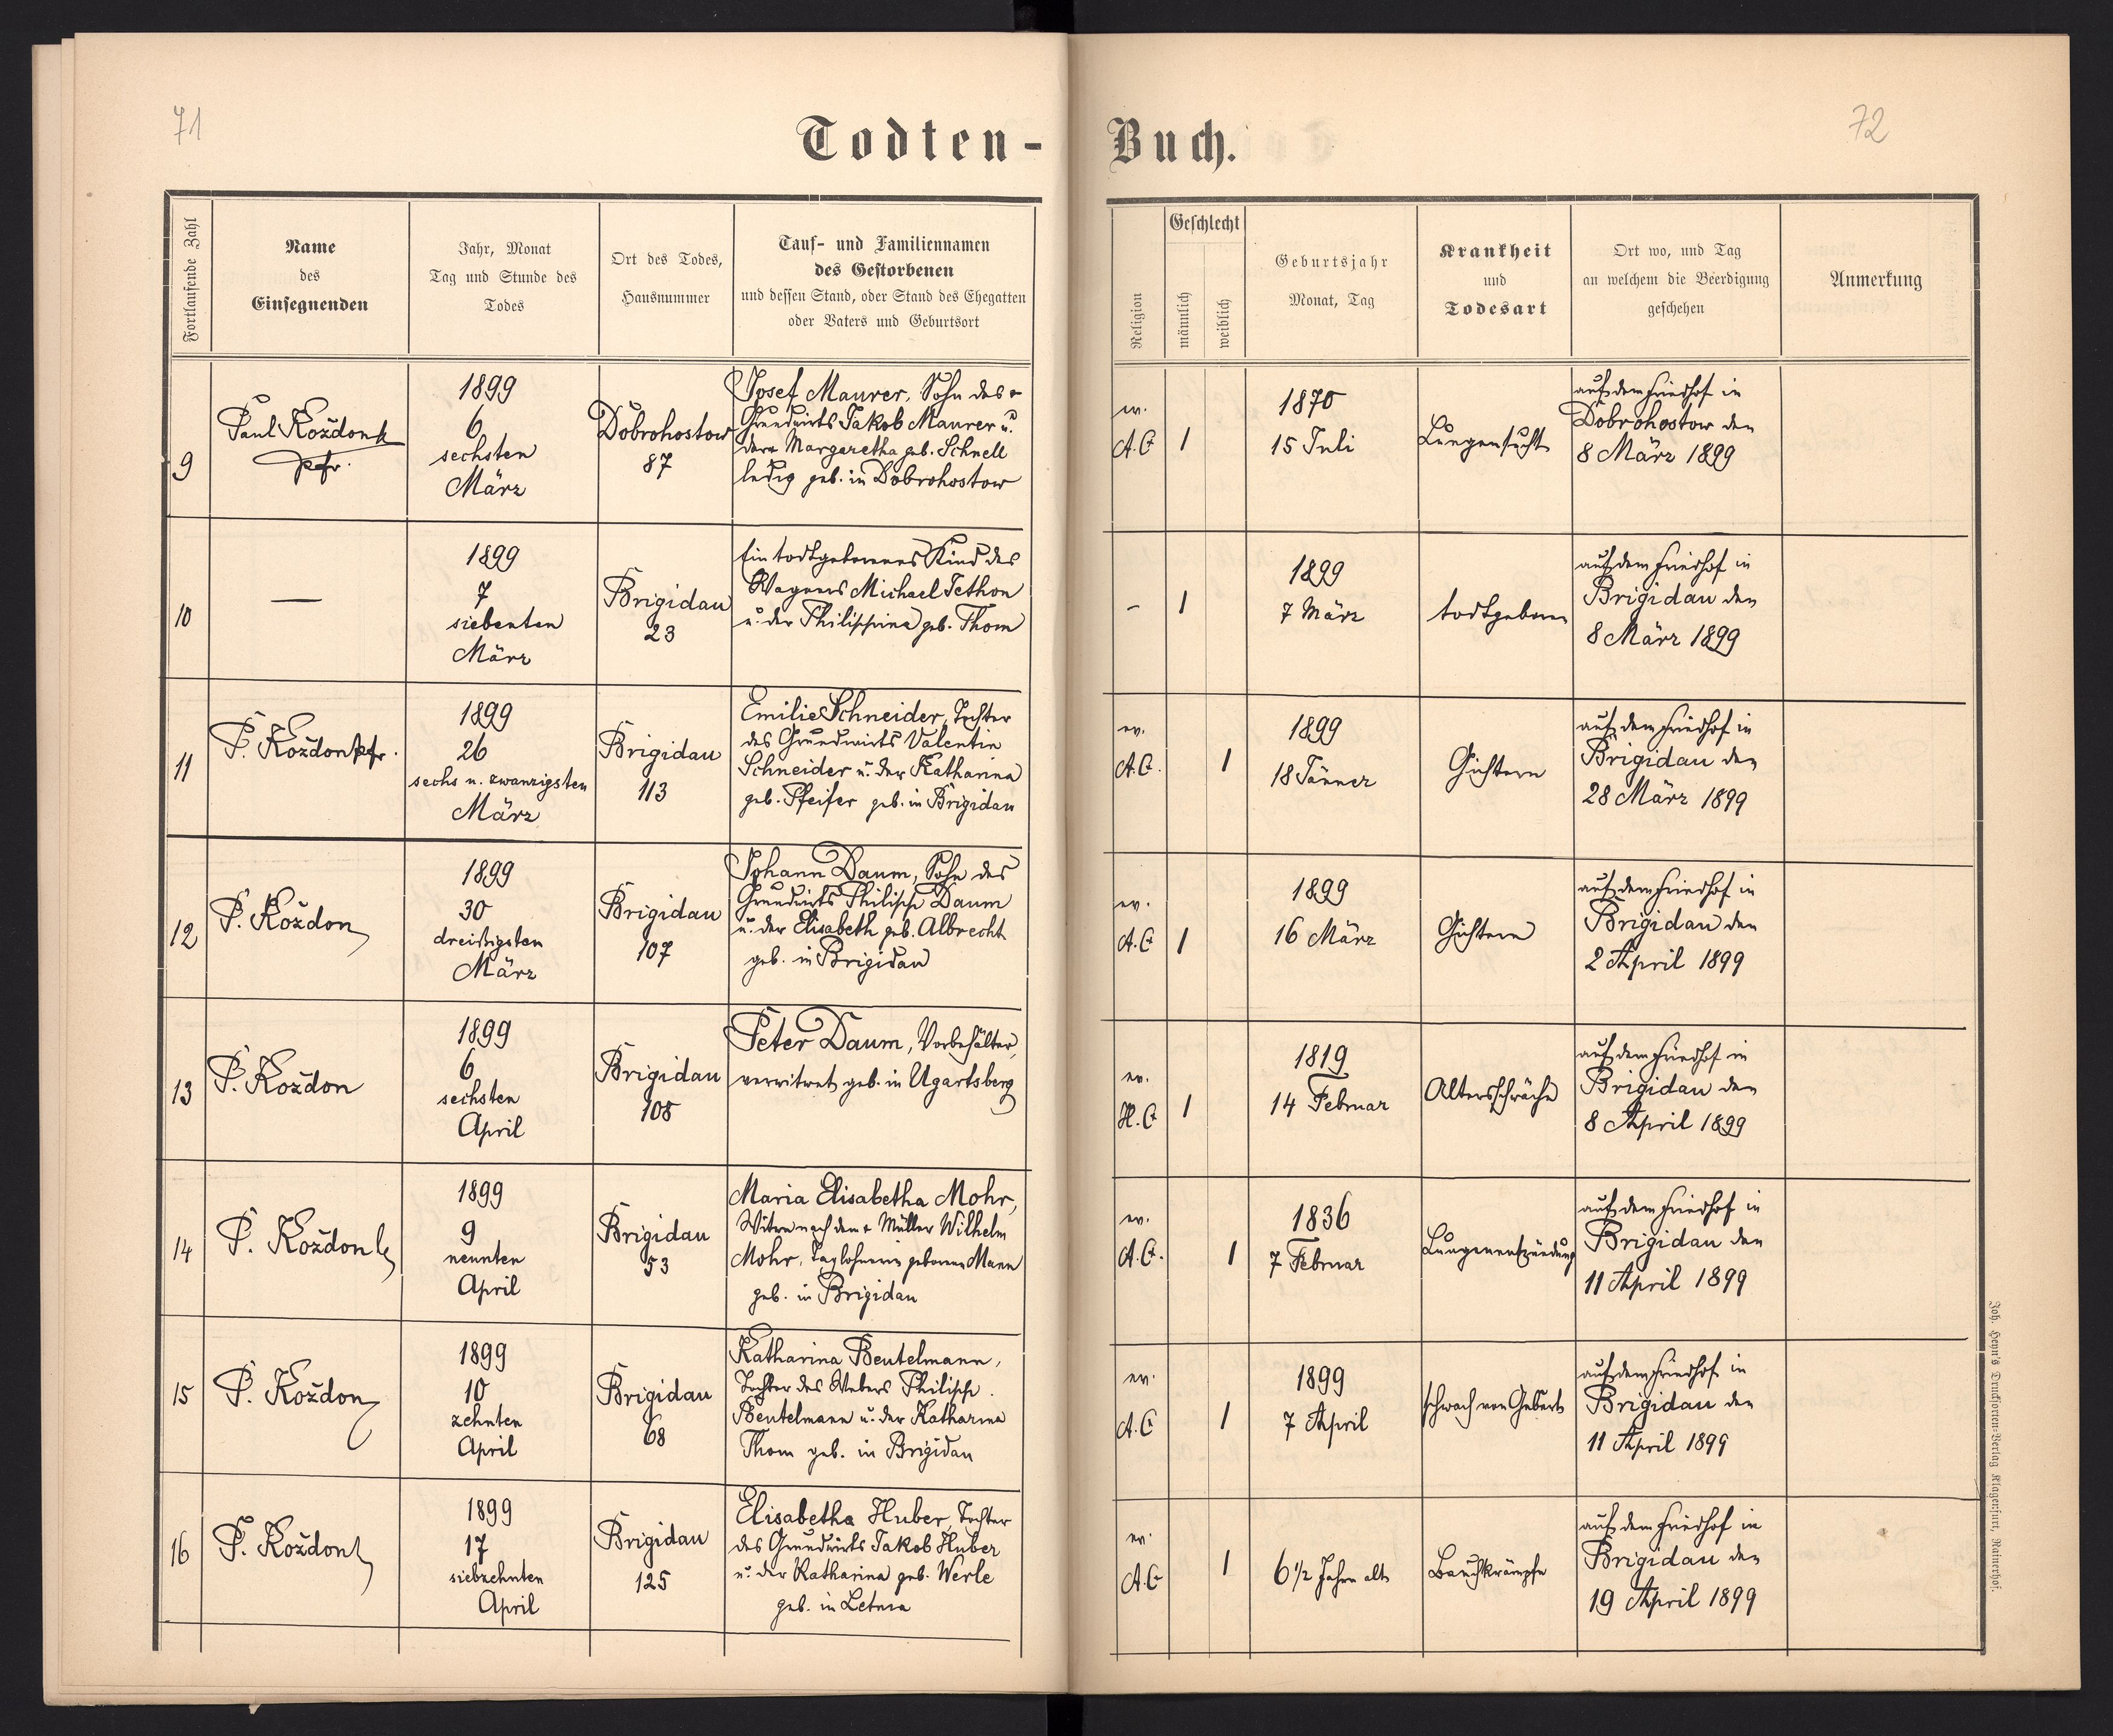 71
72
Todten-Buch.
Fortlaufende Zahl
Name
des
Einsegnenden
Jahr, Monat
Tag und Stunde des
Todes
Ort des Todes,
Hausnummer
Tauf- und Familiennamen
des Gestorbenen
und dessen Stand, oder Stand des Ehegatten
oder Vaters und Geburtsort
Religion
Geschlecht
männlich
weiblich
Geburtsjahr
Monat, Tag
Krankheit
und
Todesart
Ort wo, und Tag
an welchem die Beerdigung
geschehen
Anmerkung
9
Paul Koždon
Pfr.
1899
6
sechsten
März
Dobrohostow
87
Josef Maurer, Sohn des
Grundwirts Jakob Maurer u.
der Margaretha geb. Schnell
ledig geb. in Dobrohostow
ev.
A.C
1
1870
15 Juli
Lungensucht
auf dem Friedhof in
Dobrohostow den
8 März 1899
10
—
1899
7
siebenten
März
Brigidau
23
Ein todtgeborenes Kind des
Wagners Michael Jethon
u. der Philippina geb. Thom
-
1
1899
7 März
todtgeboren
auf dem Friedhof in
Brigidau den
8 März 1899
11
P. Koždon Pfr.
1899
26
sechs u. zwanzigsten
März
Brigidau
113
Emilie Schneider, Tochter
des Grundwirts Valentin
Schneider u. der Katharina
geb. Pfeifer geb. in Brigidau
ev.
A.C.
1
1899
18 Jänner
Gichtern
auf dem Friedhof in
Brigidau den
28 März 1899
12
P. Koždon
1899
30
dreißigsten
März
Brigidau
107
Johann Daum, Sohn des
Grundwirts Philipp Daum
u. der Elisabeth geb. Albrecht
geb. in Brigidau
ev.
A.C
1
1899
16 März
Gichtern
auf dem Friedhof in
Brigidau den
2 April 1899
13
P. Koždon
1899
6
sechsten
April
Brigidau
108
Peter Daum, Vorbehälter,
verwitwet geb. in Ugartsberg
ev.
H.C
1
1819
14 Februar
Altersschwäche
auf dem Friedhof in
Brigidau den
8 April 1899
14
P. Koždon
1899
9
neunten
April
Brigidau
53
Maria Elisabetha Mohr,
Witwe nach dem + Müller Wilhelm
Mohr, Taglöhnerin geborene Mann
geb. in Brigidau
ev.
A.C.
1
1836
7 Februar
Lungenentzündung
auf dem Friedhof in
Brigidau den
11 April 1899
15
P. Koždon
1899
10
zehnten
April
Brigidau
68
Katharina Beutelmann,
Tochter des Webers Philipp
Beutelmann u. der Katharina
Thom geb. in Brigidau
ev.
A.C
1
1899
7 April
schwach von Geburt
auf dem Friedhof in
Brigidau den
11 April 1899
16
P. Koždon
1899
17
siebzehnten
April
Brigidau
125
Elisabetha Huber, Tochter
des Grundwirts Jakob Huber
u. der Katharina geb. Werle
geb. in Letnia
ev.
A.C
1
6 1/2 Jahre alt
Bauchkrämpfe
auf dem Friedhof in
Brigidau den
19 April 1899
Joh. Heyn's Drucksorten-Verlag Klagenfurt, Rainerhof.